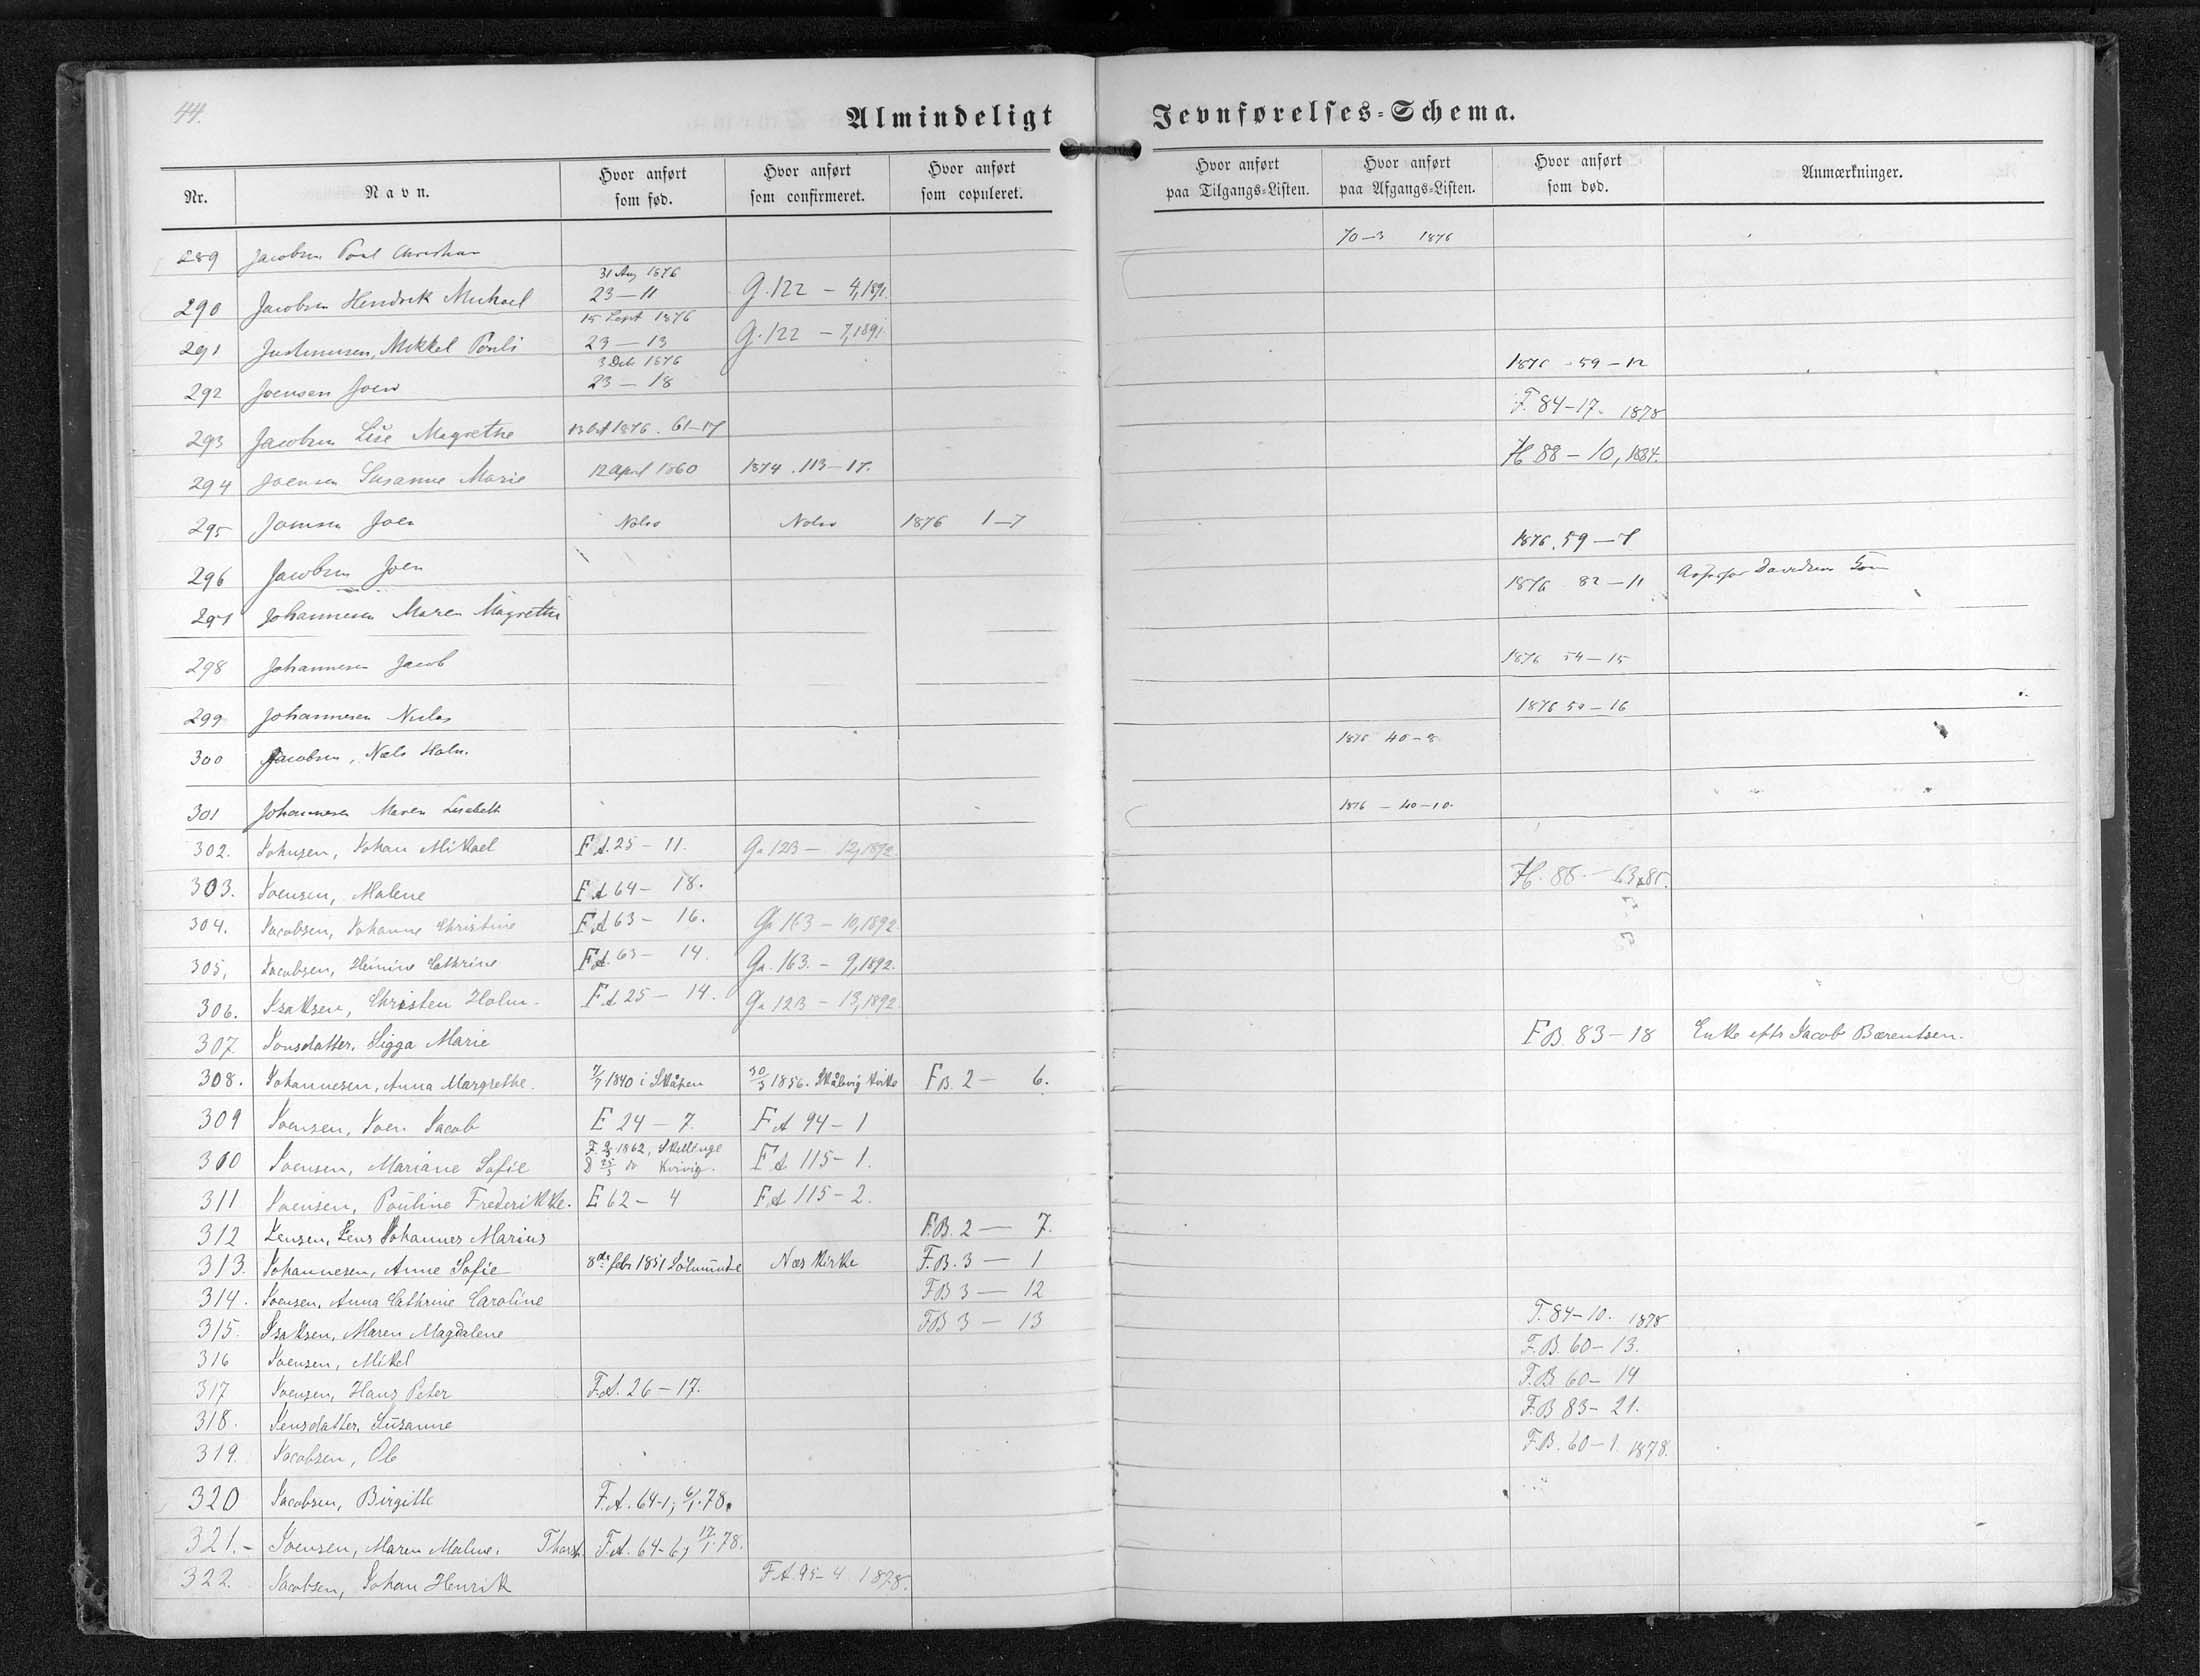 44.
Almindeligt Jevnførelses-Schema.
Nr. Navn. Hvor anført som fød. Hvor anført som confirmeret. Hvor anført som copuleret. Hvor anført paa Tilgangs-Listen. Hvor anført paa Afgangs-Listen. Hvor anført som død. Anmærkninger.
289 Jacobsen Poul Christian 70-3 1876
31 Aug 1876
290 Jacobsen Hendrik Michael 23-11 G. 122 - 4, 1891.
15 Sept 1876
291 Justinusen, Mikkel Pouli 23-13 G. 122 - 7, 1891
3 Dcb 1876
292 Joensen Joen 23-18 1876 - 59-12
293 Jacobsen Lise Magrethe 13 Oct 1876. 61-17 F. 84-17. 1878
294 Joensen Susanne Marie 12 April 1860 1874. 113-17. H 88-10, 1884.
295 Joensen Joen Nolsø Nolsø 1876 1-7
296 Jacobsen Joen 1876. 59-7
297 Johannesen Maren Magrethe 1876 82-11 Davidsen
298 Johannesen Jacob 1876 54-15
299 Johannesen Niclas 1876 50-16
300 Jacobsen, Niels Holm. 1876 40-8
301 Johannesen Maren Lisabeth 1876 - 40-10.
302. Johnsen, Johan Mikael F A. 25-11. Ga. 123- 12, 1892.
303. Joensen, Malene F A 64-18. H. 88. - 85.
304. Jacobsen, Johanne Christine F A 63-16. Ga 163 - 10, 1892.
305. Jacobsen, Heinine Cathrine F A. 63-14. Ga. 163. - 9, 1892.
306. Isaksen, Christen Holm. F A 25-14. Ga 123 - 13, 1892.
307. Jonsdatter, Sigga Marie F B. 83-18 Enke efts Jacob Bærentsen.
308. Johannesen, Anna Margrethe. 7/7 1840 i Skåpen 30/3 1856. Skålevig Kirke F B. 2- 6.
309 Joensen, Joen Jacob E 24-7. F A 94-1
310 Joensen, Mariane Sofie F. 1862, Skellinge D 25/3 do Kvivig. F A 115-1.
311 Joensen, Pouline Frederikke. E 62-4 F A 115-2.
312 Jensen, Jens Johannes Marius F.B. 2- 7.
313. Johannesen, Anne Sofie 8de febr 1851 Sölmunde Næs Kirke F.B. 3- 1
314. Joensen, Anna Cathrine Caroline F B 3- 12
315. Isaksen, Maren Magdalene F B 3- 13 F. 84-10. 1878
316 Joensen, Mikel F.B. 60-13.
317 Joensen, Hans Peter F.A. 26-17. F.B 60-14
318. Jensdatter, Susanne F.B 83-21.
319. Jacobsen, Ole F.B. 60-1. 1878.
320 Jacobsen, Birgitte F.A. 64-1, 6/1.78.
321.- Joensen, Maren Malene. Thorsh. F.A. 64-6, 17/1.78.
322. Jacobsen, Johan Henrik F A. 95-4 1878.